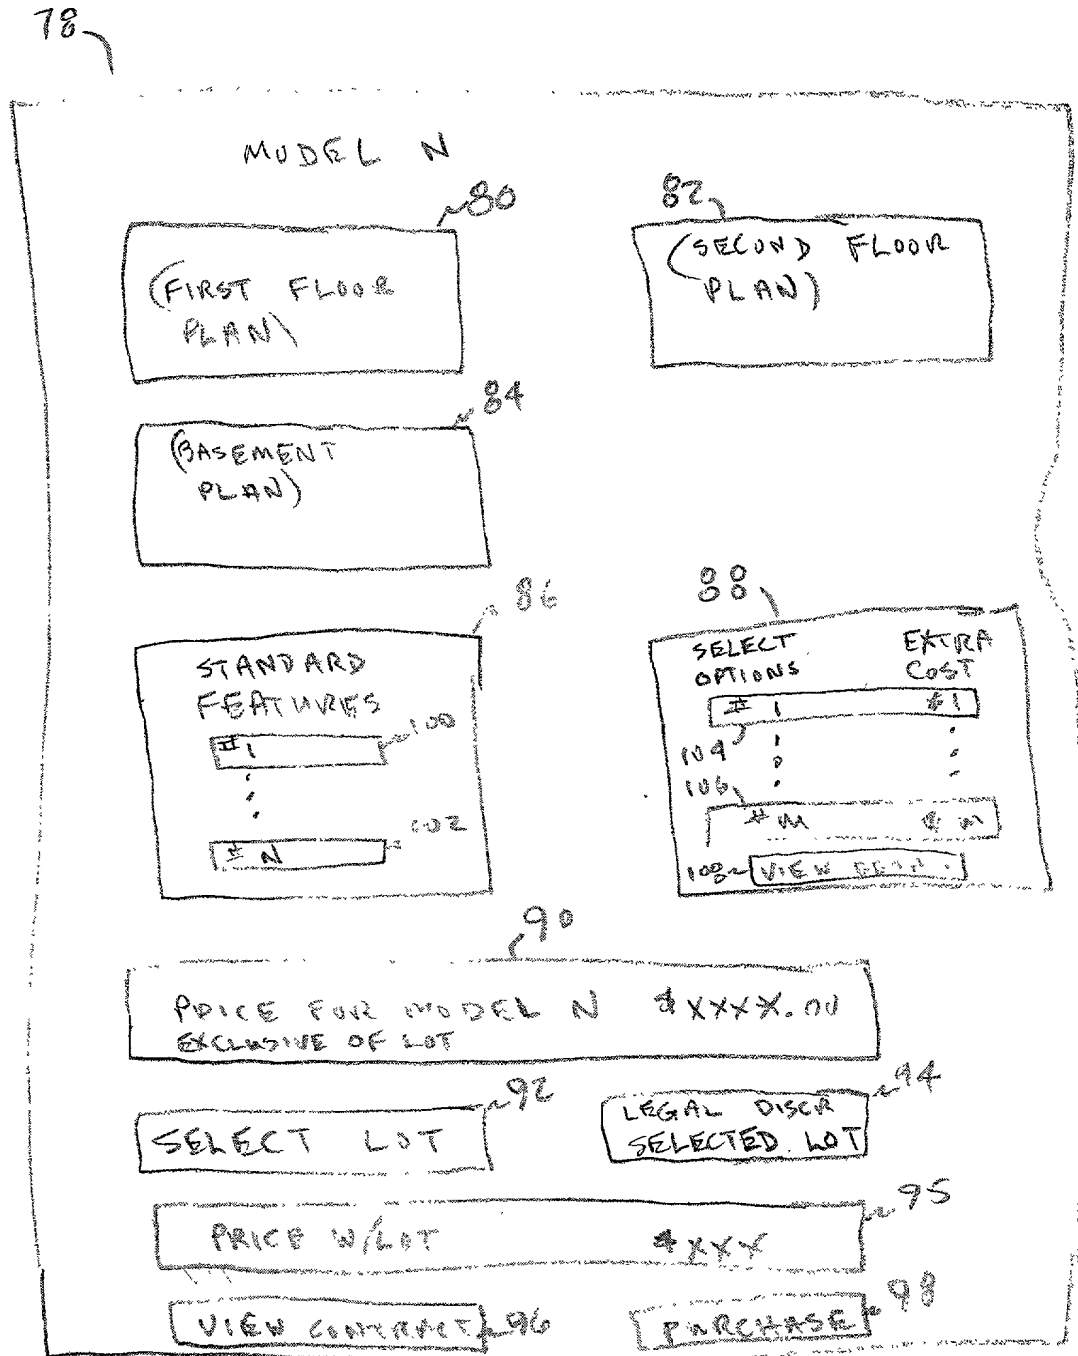 78
MODEL N
80
82
(FIRST FLOOR
PLAN)
(SECOND FLOOR
PLAN)
84
(BASEMENT
PLAN)
86
88
STANDARD
FEATURES
# 1
100
# N
102
SELECT
OPTIONS
EXTRA
COST
# 1
$1
104
106
# M
$ M
108
VIEW
90
PRICE FOR MODEL N $XXXX.00
EXCLUSIVE OF LOT
92
94
SELECT LOT
LEGAL DISCR
SELECTED LOT
95
PRICE W/LOT $XXX
VIEW CONTRACT
96
PURCHASE
98